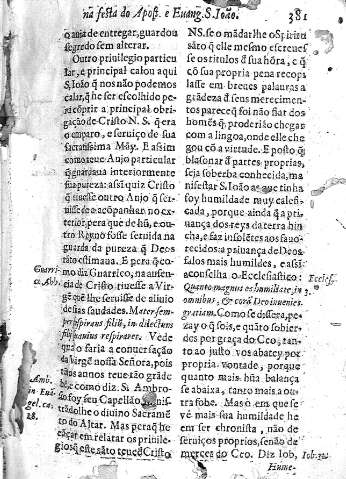 na festa do Apost. e Euang. S. Ioão. 381
o auia de entregar, guardou
segredo sem alterar.
Outro priuilegio particu
lar, e principal calou aqui
S. Ioão q̃ nos não podemos
calar, q̃ he ser escolhido pe
rà cõprir a principal obri
gação de Cristo N. S. q̃ era
o emparo, e seruiço de sua
sacratissima Mãy. E assim
como teue Anjo particular
q̃ guardaua interiormente
sua pureza: assi quiz Cristo
q̃ tiuesse outro Anjo q̃ ser-
uisse de a acõpanhar no ex-
terior, pera que de hũ, e ou
tro Reyno fosse seruida na
guarda da pureza q̃ Deos
tãto estimaua. E pera q̃ co-
mo diz Guarrico, na ausen
cia de Cristo tiuesse a Vir-
gẽ quẽ lhe seruisse de aliuio
de suas saudades. Mater sem-
per suspirans filiũ, in dilectum
filij mauius respiraret. Vede
qual seria a conuersação
da Virgẽ nossa Senhora, pois
tãos annos teue tão grãde
, e como diz S. Ambro-
sio foy seu Capellão, minis-
trãdolhe o diuino Sacramẽ
to do Altar. Mas pera q̃ he
cãçar em relatar os priuile-
gios q̃ este sãto teue? Cristo
Guarri-
co. Abb.
Amb.
in Euã-
gel. ca.
28.
NS. se o mãdar lhe o Spiritu
sãto q̃ elle mesmo escreues
se os titulos d' sua hõra, e q̃
cõ sua propria pena recopi
lasse em breues palauras a
grãdeza d' seus merecimen
tos parece q̃ foi não fiar dos
homẽs q̃ poderião chegar
com a lingoa, onde elle che
gou cõ a virtude. E posto q̃
blasonar d' partes proprias,
seja soberba conhecida, ma
nifestar S. Ioão as que tinha
foy humildade muy calefi-
cada, porque ainda q̃ a pri
uança dos reys da terra hin
cha, e faz insolẽtes aos fauo
recidos: a priuança de Deos
falos mais humildes, e assi
aconselha o Ecclesiastico:
Quanto magnus es humiliate in
omnibus, & corã Deo inuenies
gratiam. Como se dissera, pe-
zay o q̃ sois, e quãto sobier-
des por graça do Ceo, tan-
to ao justo vos abatey por
propria vontade, porque
quanto mais hũa balança
se abaixa, tanto mais a ou
tra sobe. Mas o em que se
vè mais sua humildade he
em ser chronista, não de
seruiços proprios, senão de
merces do Ceo. Diz Iob,
Eccles.
3.
Iob. 30.
Hume-